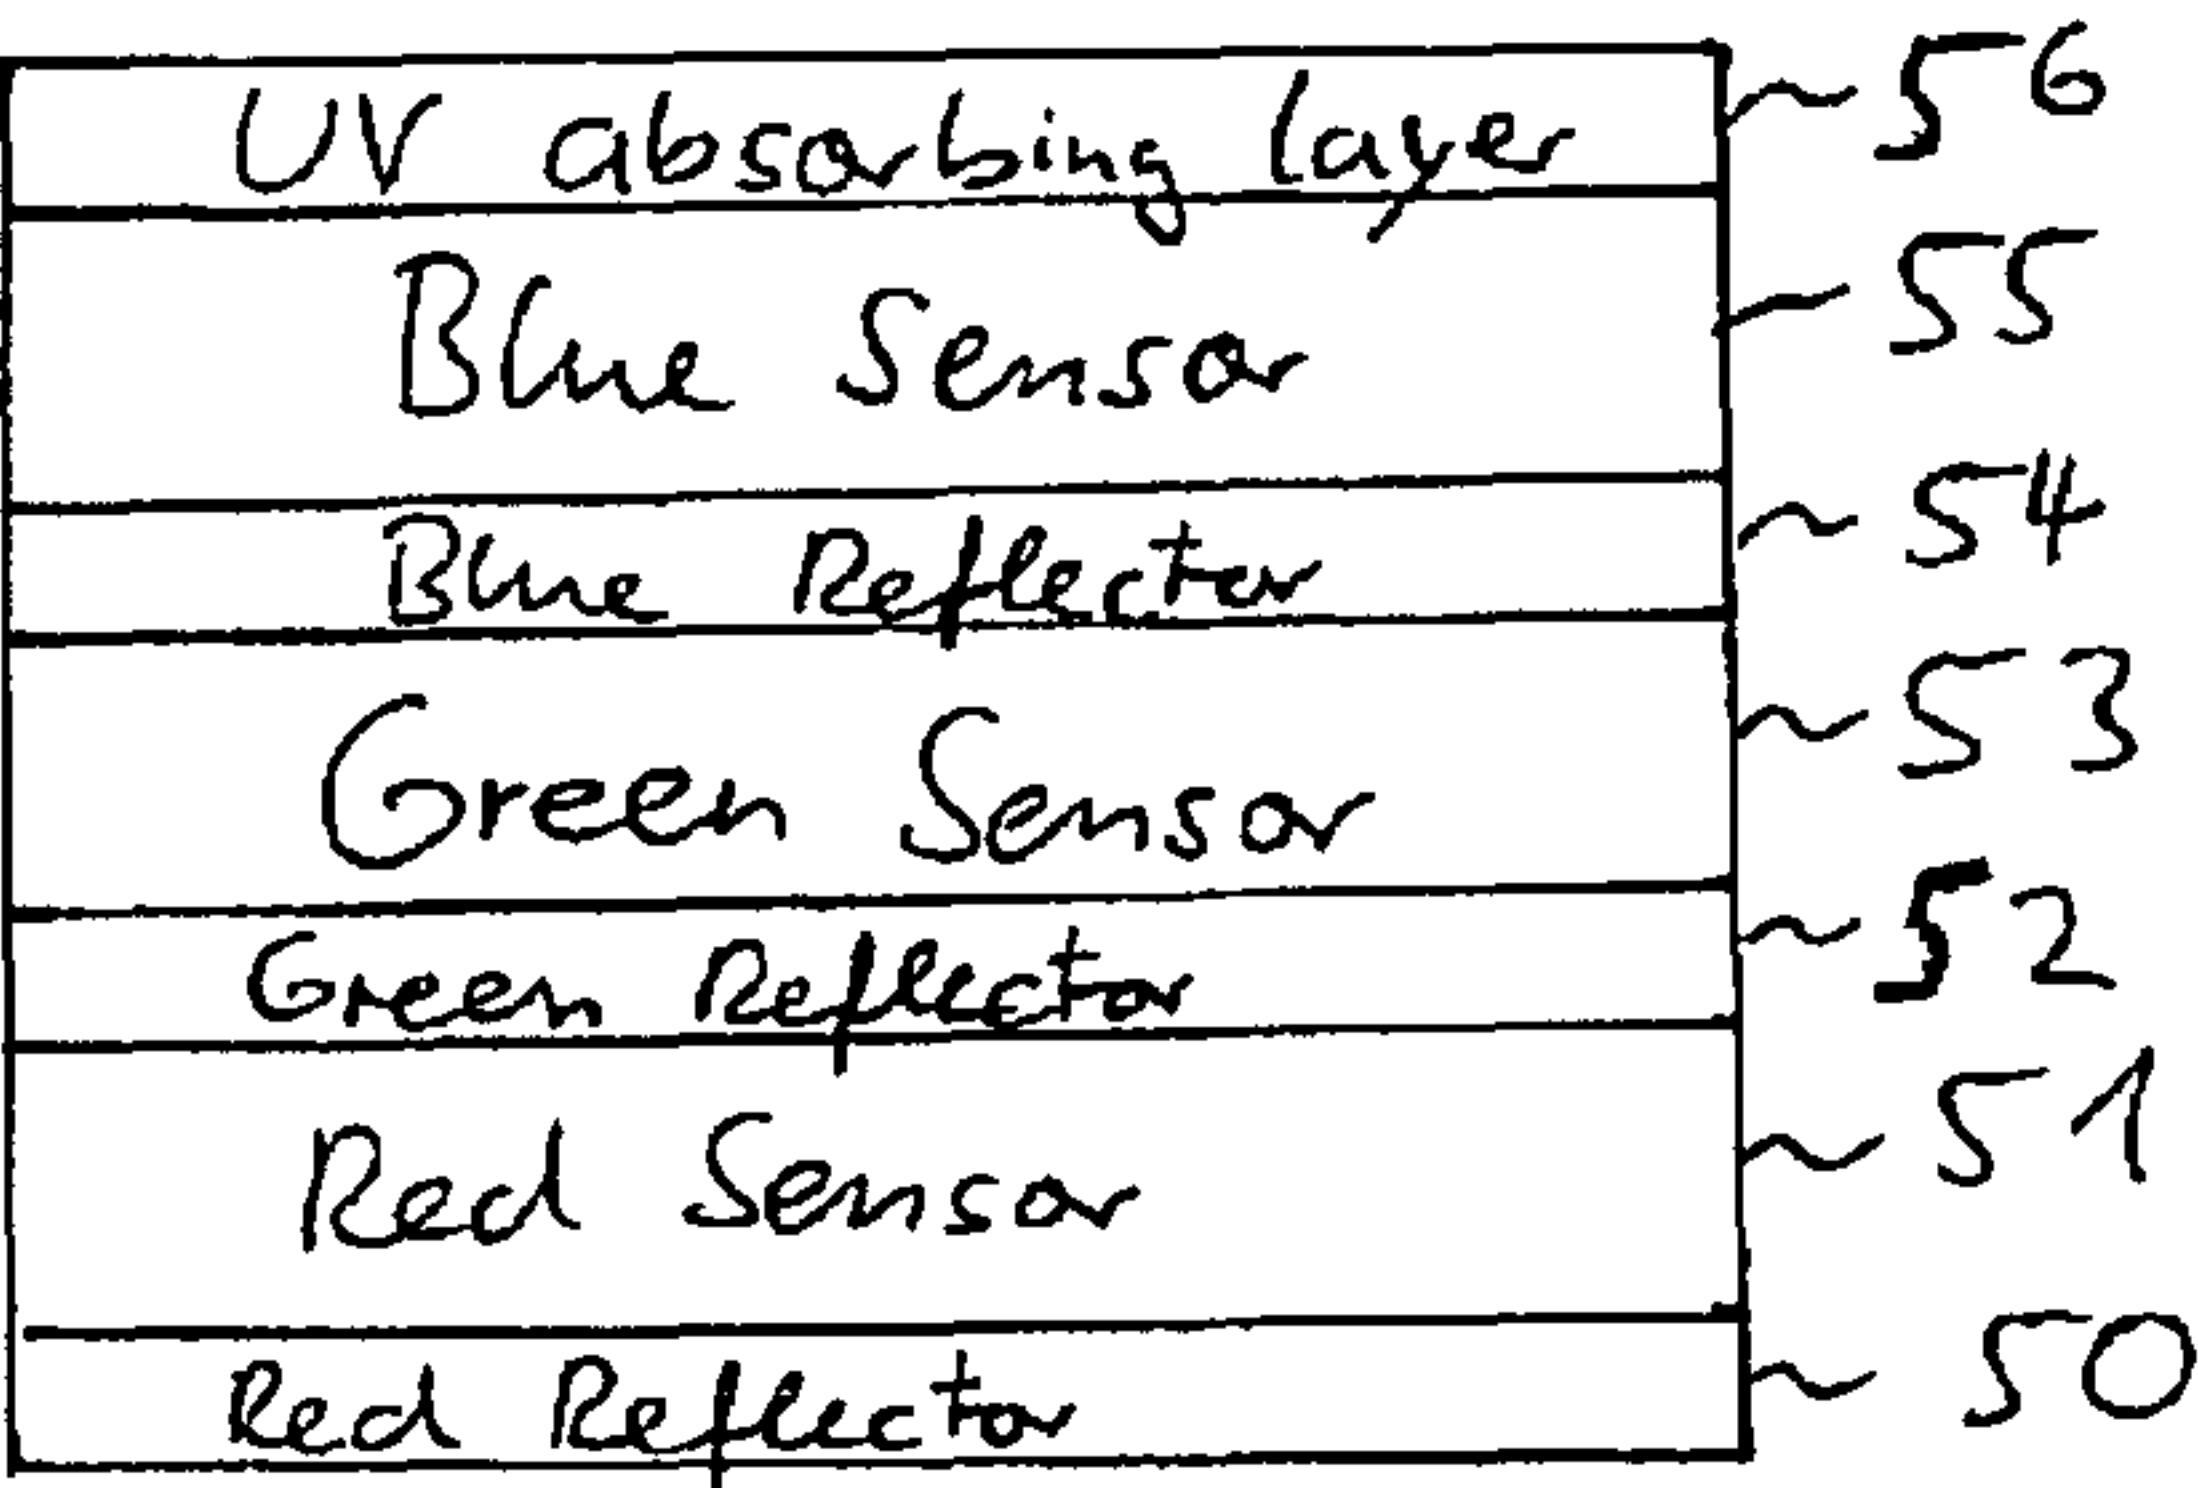 UV absorbing layer 56
Blue Sensor 55
Blue Reflector 54
Green Sensor 53
Green Reflector 52
Red Sensor 51
Red Reflector 50